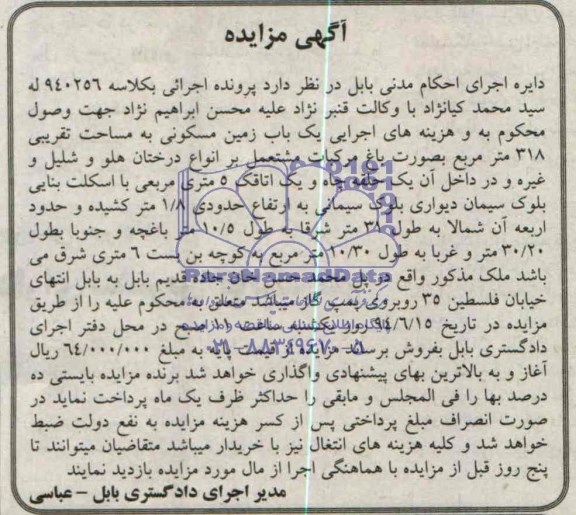 آگهی مزایده
دایره اجرای احکام مدنی بابل در نظر دارد پرونده اجرائی بکلاسه ۹۴۰۲۵۶ له
سید محمد کیانژاد با وکالت قنبر نژاد علیه محسن ابراهیم نژاد جهت وصول
محکوم به و هزینه های اجرایی یک باب زمین مسکونی به مساحت تقریبی
۳۱۸ متر مربع بصورت باغ مرکبات مشتمل بر انواع درختان هلو و شلیل و
غیره و در داخل آن یک حلقه چاه و یک اتاقک ۵ متری مربعی با اسکلت بنایی
بلوک سیمان دیواری بلوک سیمانی به ارتفاع حدودی ۱/۸ متر کشیده و حدود
اربعه آن شمالا به طول ۳۱ متر شرقا به طول ۱۰/۵ متر باغچه و جنوبا بطول
۳۰/۲۰ متر و غربا به طول ۱۰/۳۰ متر مربع به کوچه بن بست ۶ متری شرق می
باشد ملک مذکور واقع در پل محمد حسن خان جاده قدیم بابل به بابل انتهای
خیابان فلسطین ۳۵ روبروی پمپ گاز میباشد متعلق به محکوم علیه را از طریق
مزایده در تاریخ ۹۴/۶/۱۵ روز یکشنبه ساعت ۱۱ صبح در محل دفتر اجرای
دادگستری بابل بفروش برساند مزایده از قیمت پایه به مبلغ ۶۴/۰۰۰/۰۰۰ ریال
آغاز و به بالاترین بهای پیشنهادی واگذاری خواهد شد برنده مزایده بایستی ده
درصد بها را فی المجلس و مابقی را حداکثر ظرف یک ماه پرداخت نماید در
صورت انصراف مبلغ پرداختی پس از کسر هزینه مزایده به نفع دولت ضبط
خواهد شد و کلیه هزینه های انتقال نیز با خریدار میباشد متقاضیان میتوانند تا
پنج روز قبل از مزایده با هماهنگی اجرا از مال مورد مزایده بازدید نمایند
مدیر اجرای دادگستری بابل – عباسی
ParsNamadData
۰۲۱-۸۸۳۴۹۶۷۰-۵